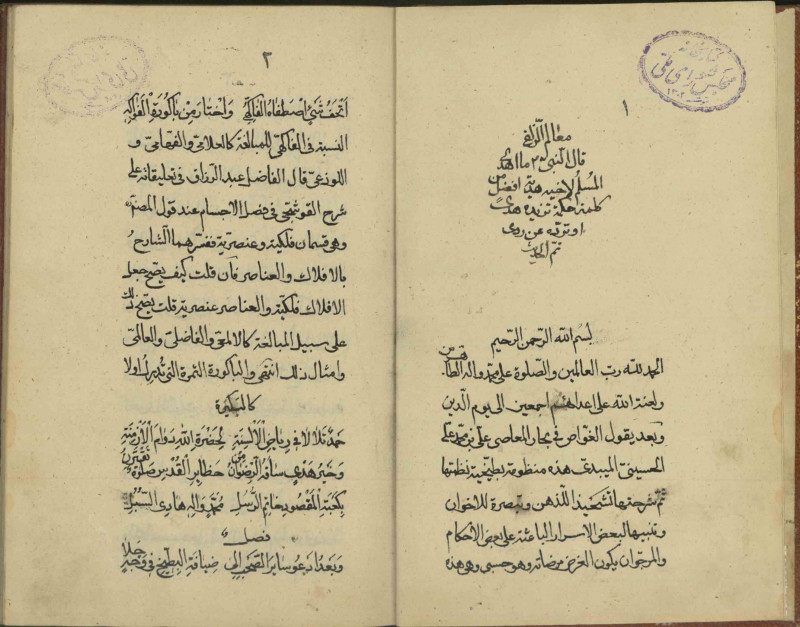 ١
معالم الزلفی
قال النبی ص ما اهدی
المسلم لاخیه هدیة افضل من
کلمة حکمة تزیده هدی
او ترده عن ردی
تم الحدیث
بسم الله الرحمن الرحیم
الحمد لله رب العالمین والصلوة علی محمد واله الطاهرین
ولعنة الله علی اعدائهم اجمعین الی یوم الدین
وبعد یقول الغواص فی بحار المعاصی علی بن محمد علی
الحسینی المیبدی هذه منظومة بطیخیة نظمتها
ثم شرحتها تشحیذا للذهن وتبصرة للاخوان
وتنبیها لبعض الاسرار الباعثة علی بعض الاحکام
والمرجو ان یکون الغرض مرضاته وهو حسبی وهو هذه
٢
اتحف شیئ اصطفاه الفاکهی واختار من باکورة الفواکه
النسبة فی الفاکهی للمبالغة کالعلامی والفهامی و
اللوذعی قال الفاضل عبد الرزاق فی تعلیقاته علی
شرح القوشجی فی فصل الاجسام عند قول المصنف
وهی قسمان فلکیة وعنصریة ففسرهما الشارح
بالافلاک والعناصر فان قلت کیف یصح جعل
الافلاک فلکیة والعناصر عنصریة قلت یصح ذلک
علی سبیل المبالغة کالالمعی والفاضلی والعالمی
وامثال ذلک انتهی والباکورة الثمرة التی تدرک اولا
کالبکیرة
حمد تلالا فی ریاض الالسنة لحضرة الله بدوام الازمنة
وخیر هدی ساقه الرضوان من حظایر القدس صلوة
بکعبة المقصود خاتم الرسل محمد واله هادی السبل
فصل
وبعد ادعو سایر الصحب الی ضیافة البطیخ فی وجه